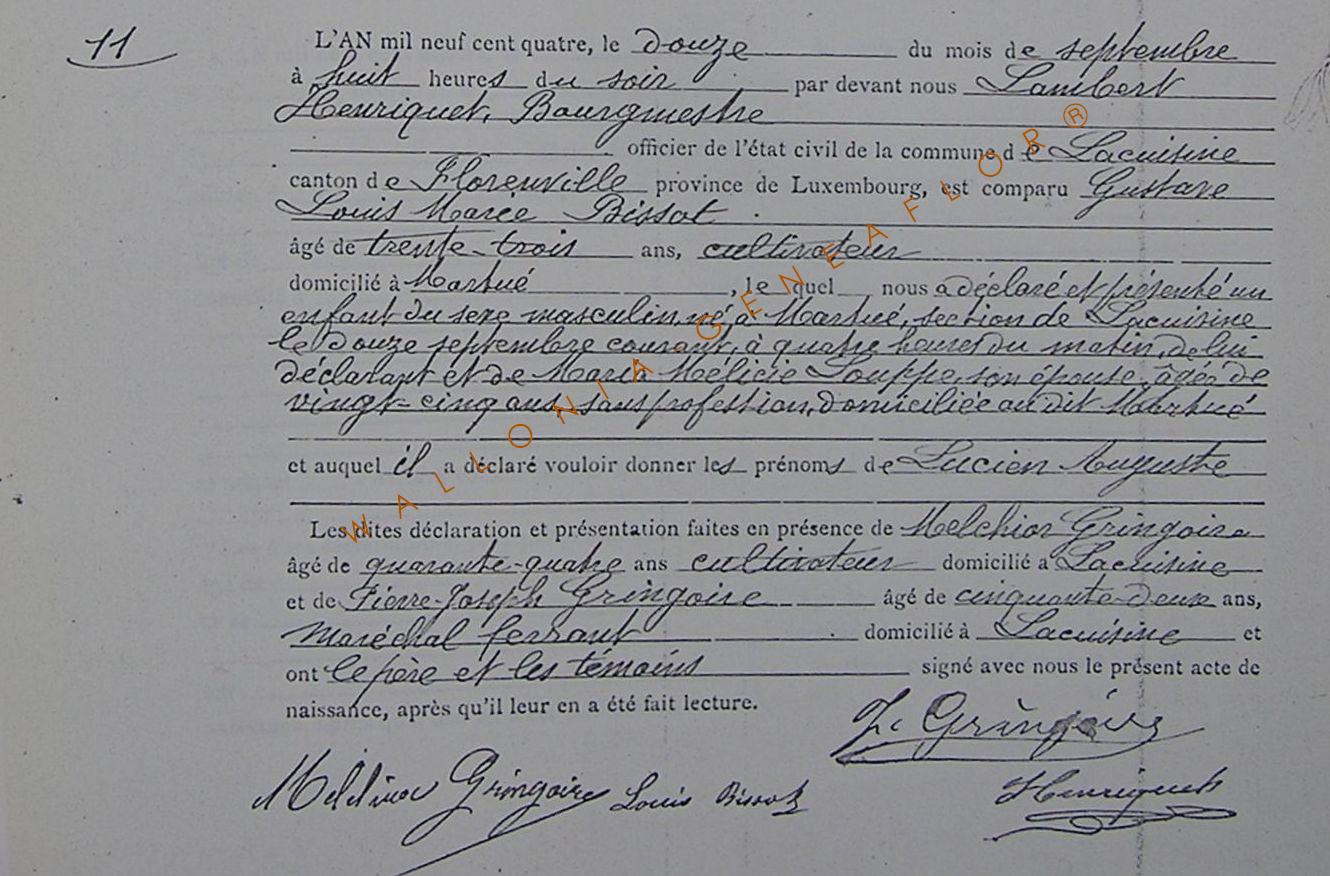 11
L'AN mil neuf cent quatre, le douze du mois de septembre
à huit heures du soir par devant nous Lambert
Henriquet, Bourgmestre
officier de l'état civil de la commune de Lacuisine
canton de Florenville province de Luxembourg, est comparu Gustave
Louis Marie Bissot
âgé de trente-trois ans, cultivateur
domicilié à Martué, lequel nous a déclaré et présenté un
enfant du sexe masculin, né à Martué, section de Lacuisine
le douze septembre courant, à quatre heures du matin, de lui
déclarant et de Maria Mélicie Louppe, son épouse, âgée de
vingt-cinq ans, sans profession, domiciliée au dit Martué
et auquel il a déclaré vouloir donner les prénoms de Lucien Auguste
Les dites déclaration et présentation faites en présence de Melchior Gringoire
âgé de quarante-quatre ans cultivateur domicilié à Lacuisine
et de Pierre-Joseph Gringoire âgé de cinquante-deux ans,
maréchal ferrant domicilié à Lacuisine et
ont le père et les témoins signé avec nous le présent acte de
naissance, après qu'il leur en a été fait lecture.
Gringoire
Gringoire Louis Bissot Henriquet
WALLONIA GENEAFLOR®